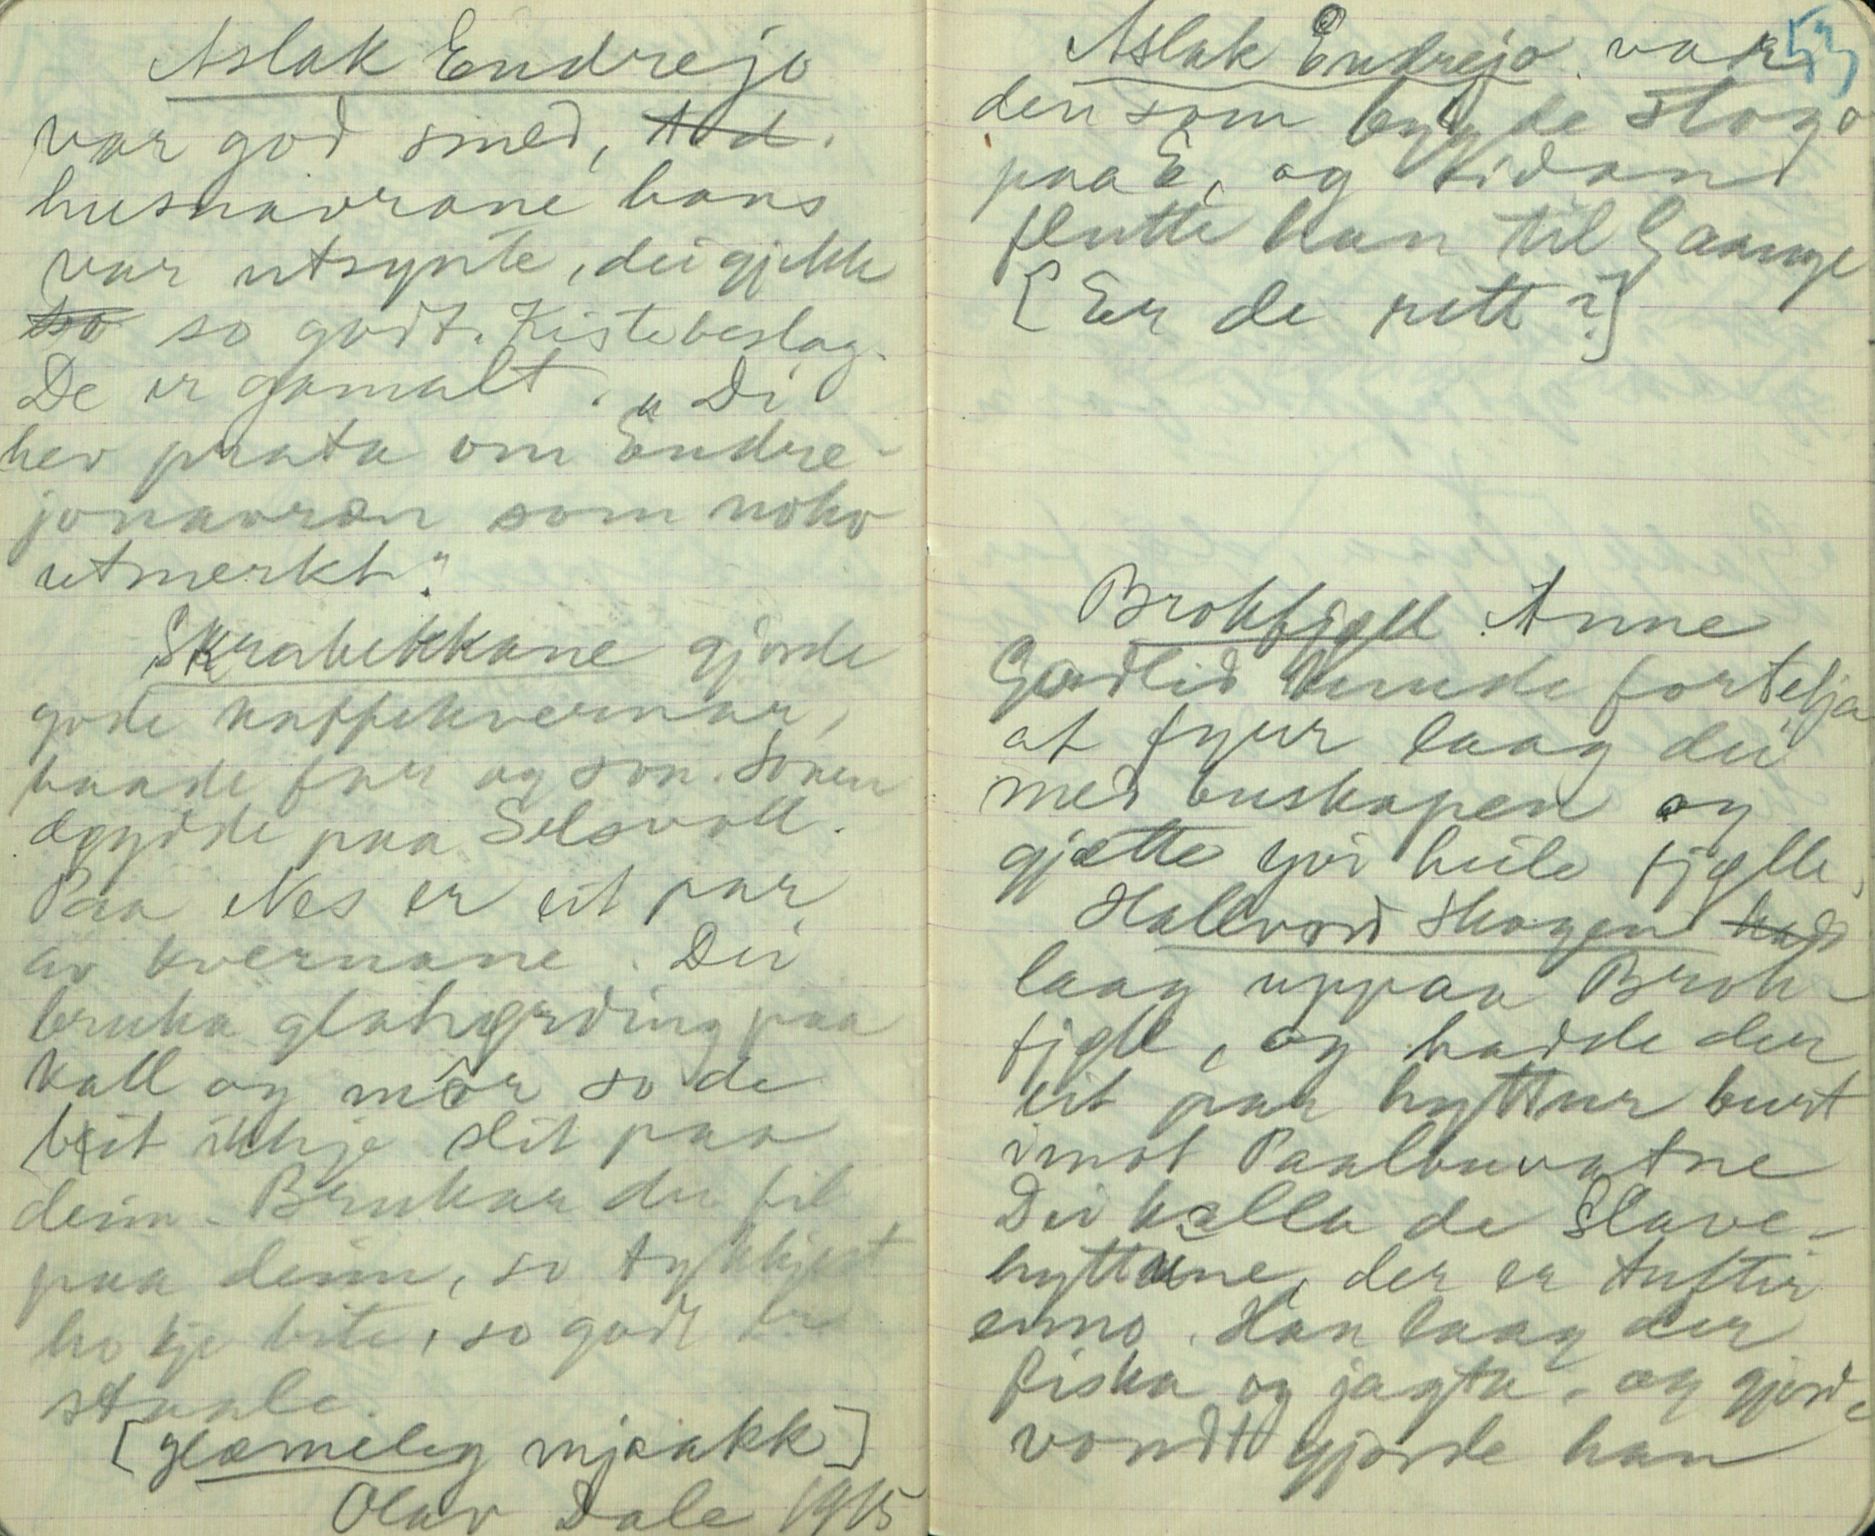 Aslak Endrejo
var god smed,
husnavrane hans
var utsynte, dei gjekk
so godt. Kistebeslag.
De er gamalt. "Di
hev prata om Endre-
jonavran som noko
utmerkt."
Skrabekkane gjorde
gode kaffekvernar,
baade far og son. Sonen
døydde paa Selsvoll.
Paa Nes er eit par
av kvernane. Dei
bruka glaherding paa
kall og mor so de
beit ikkje slit paa
deim. Brukar du fil
paa deim, so tykkjest
ho kje bite, so godt er
staale.
[glæmeleg mjaakk]
Olav Dale 1915
53
Aslak Endrejo var
den som bygde stogo
paa E, og sidan
flutte han til Haauge
[Er de rett?]
Brokfjell Anne
Godlid kunde fortelja
at fyrr laag dei
med buskapen og
gjætte yvi heile fjelle.
Hallvord Skogen
laag uppaa Brok-
fjell, og hadde der
eit par hyttur burt
imot Paalbuvatne
Dei kalla de Slave-
hyttune, der er tuftir
enno. Han laag der
fiska og jagta. og gjord
vondt gjorde han